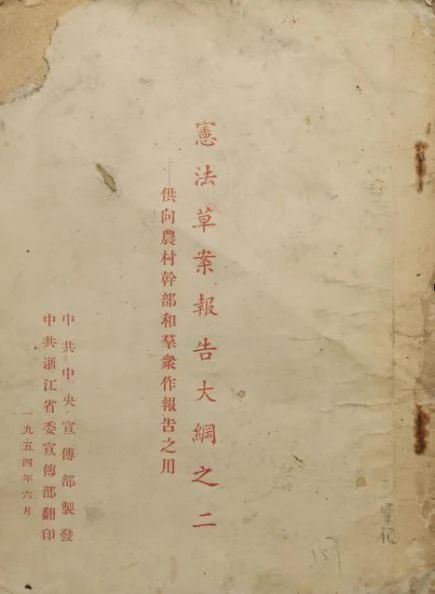 憲法草案報告大綱之二
——供向農村幹部和羣衆作報告之用
中共中央宣傳部製發
中共浙江省委宣傳部翻印
一九五四年六月